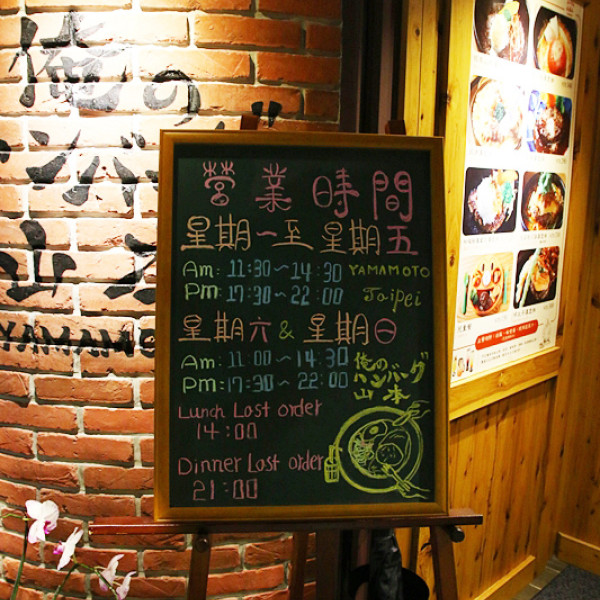 俺の
ハンバーグ
山本
YAMAMO
營業時間
星期一至星期五
Am: 11:30～14:30 YAMAMOTO
Pm: 17:30～22:00 Taipei
星期六&星期日
Am: 11:00～14:30
Pm: 17:30～22:00
俺の
ハンバーグ
山本
Lunch Last order
14:00
Dinner Last order
21:00